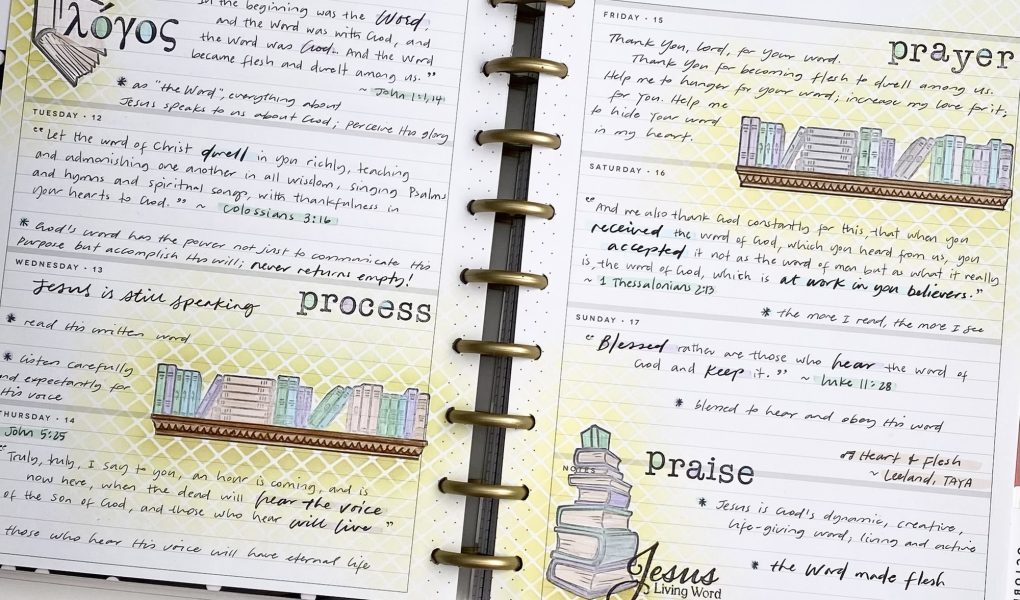 λόγος
In the beginning was the Word,
and the Word was with God, and
the Word was God. And the Word
became flesh and dwelt among us."
~ John 1:1,14
* as "the Word", everything about
Jesus speaks to us about God; perceive His glory
TUESDAY • 12
"Let the word of Christ dwell in you richly, teaching
and admonishing one another in all wisdom, singing Psalms
and hymns and spiritual songs, with thankfulness in
your hearts to God." ~ Colossians 3:16
* God's word has the power not just to communicate His
purpose but accomplish His will; never returns empty!
WEDNESDAY • 13
Jesus is still speaking
process
* read His written word
* listen carefully
and expectantly for
His voice
THURSDAY • 14
John 5:25
"Truly, truly, I say to you, an hour is coming, and is
now here, when the dead will hear the voice
of the son of God, and those who hear will live"
those who hear His voice will have eternal life
FRIDAY • 15
prayer
Thank You, Lord, for your word.
Thank You for becoming flesh to dwell among us.
Help me to hunger for your word; increase my love for it,
for You. Help me
to hide Your word
in my heart.
SATURDAY • 16
"And we also thank God constantly for this, that when you
received the word of God, which you heard from us, you
accepted it not as the word of men but as what it really
is, the word of God, which is at work in you believers."
~ 1 Thessalonians 2:13
* the more I read, the more I see
SUNDAY • 17
"Blessed rather are those who hear the word of
God and keep it." ~ Luke 11:28
* blessed to hear and obey His word
♫ Heart & Flesh
~ Leeland, TAYA
NOTES
praise
* Jesus is God's dynamic, creative,
life-giving word; living and active
* the Word made flesh
Jesus
Living Word